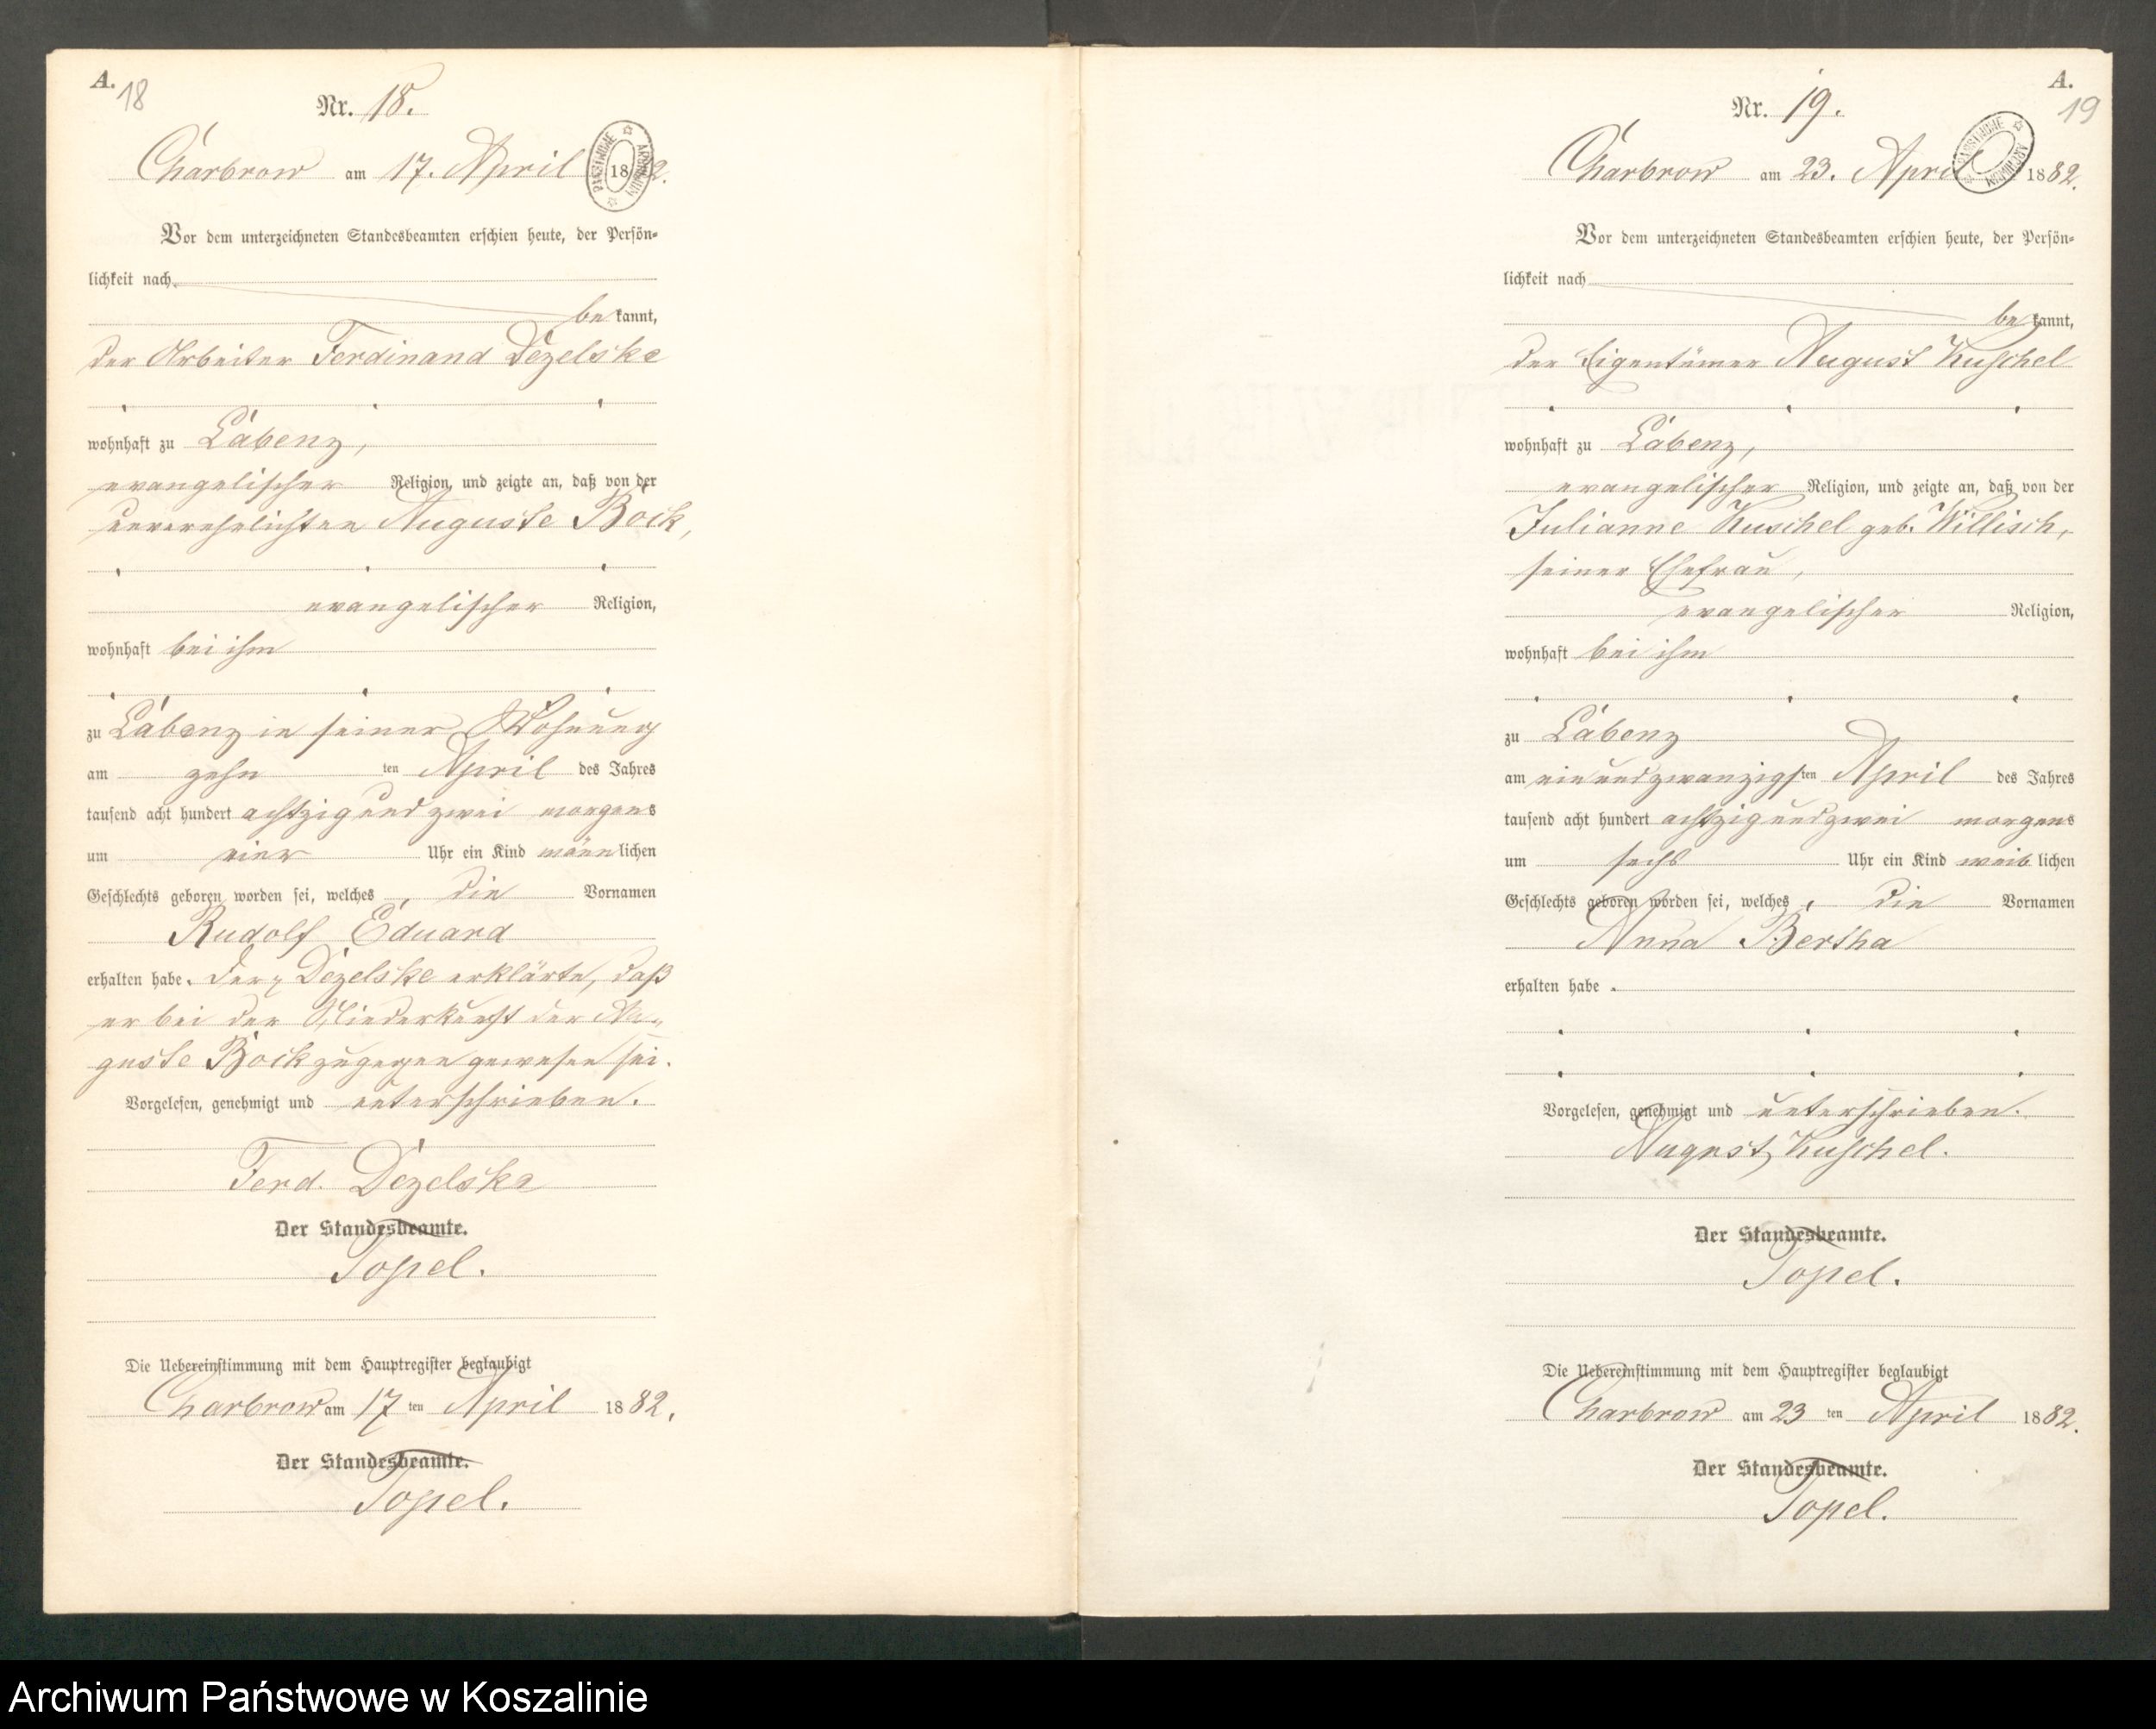 A.
18
Nr. 18.
Charbrow am 17. April 1882.
Vor dem unterzeichneten Standesbeamten erschien heute, der Persön-
lichkeit nach
bekannt,
der Arbeiter Ferdinand Dezelske
wohnhaft zu Labenz,
evangelischer Religion, und zeigte an, daß von der
unverehelichten Auguste Bock,
evangelischer Religion,
wohnhaft bei ihm
zu Labenz in seiner Wohnung
am zehn ten April des Jahres
tausend acht hundert achtzig und zwei morgens
um vier Uhr ein Kind männlichen
Geschlechts geboren worden sei, welches die Vornamen
Rudolf Eduard
erhalten habe. Der Dezelske erklärte, daß
er bei der Niederkunft der Au-
guste Bock zugegen gewesen sei.
Vorgelesen, genehmigt und unterschrieben.
Ferd. Dezelske
Der Standesbeamte.
Topel.
Die Uebereinstimmung mit dem Hauptregister beglaubigt
Charbrow am 17 ten April 1882.
Der Standesbeamte.
Topel.
A.
19
Nr. 19.
Charbrow am 23. April 1882.
ARCHIWUM PAŃSTWOWE
Vor dem unterzeichneten Standesbeamten erschien heute, der Persön-
lichkeit nach
bekannt,
der Eigentümer August Kuschel
wohnhaft zu Labenz,
evangelischer Religion, und zeigte an, daß von der
Julianne Kuschel geb. Willisch,
seiner Ehefrau,
evangelischer Religion,
wohnhaft bei ihm
zu Labenz
am einundzwanzigsten April des Jahres
tausend acht hundert achtzig und zwei morgens
um sechs Uhr ein Kind weiblichen
Geschlechts geboren worden sei, welches die Vornamen
Anna Bertha
erhalten habe.
Vorgelesen, genehmigt und unterschrieben.
August Kuschel.
Der Standesbeamte.
Topel.
Die Uebereinstimmung mit dem Hauptregister beglaubigt
Charbrow am 23 ten April 1882.
Der Standesbeamte.
Topel.
Archiwum Państwowe w Koszalinie